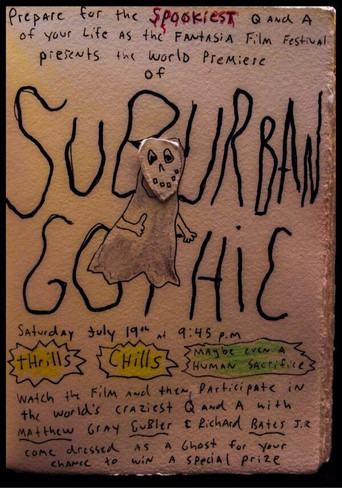 Prepare for the Spookiest Q and A
of your Life as the FANTASIA Film Festival
presents the World Premiere
of
SUBURBAN
GOTHIC
Saturday July 19th at 9:45 p.m
tHrills CHills Maybe even A
HUMAN SACRIFICE
Watch the Film and then Participate in
the world's craziest Q and A with
Matthew Gray Gubler & Richard Bates J.R
come dressed as a Ghost for your
chance to win a special prize